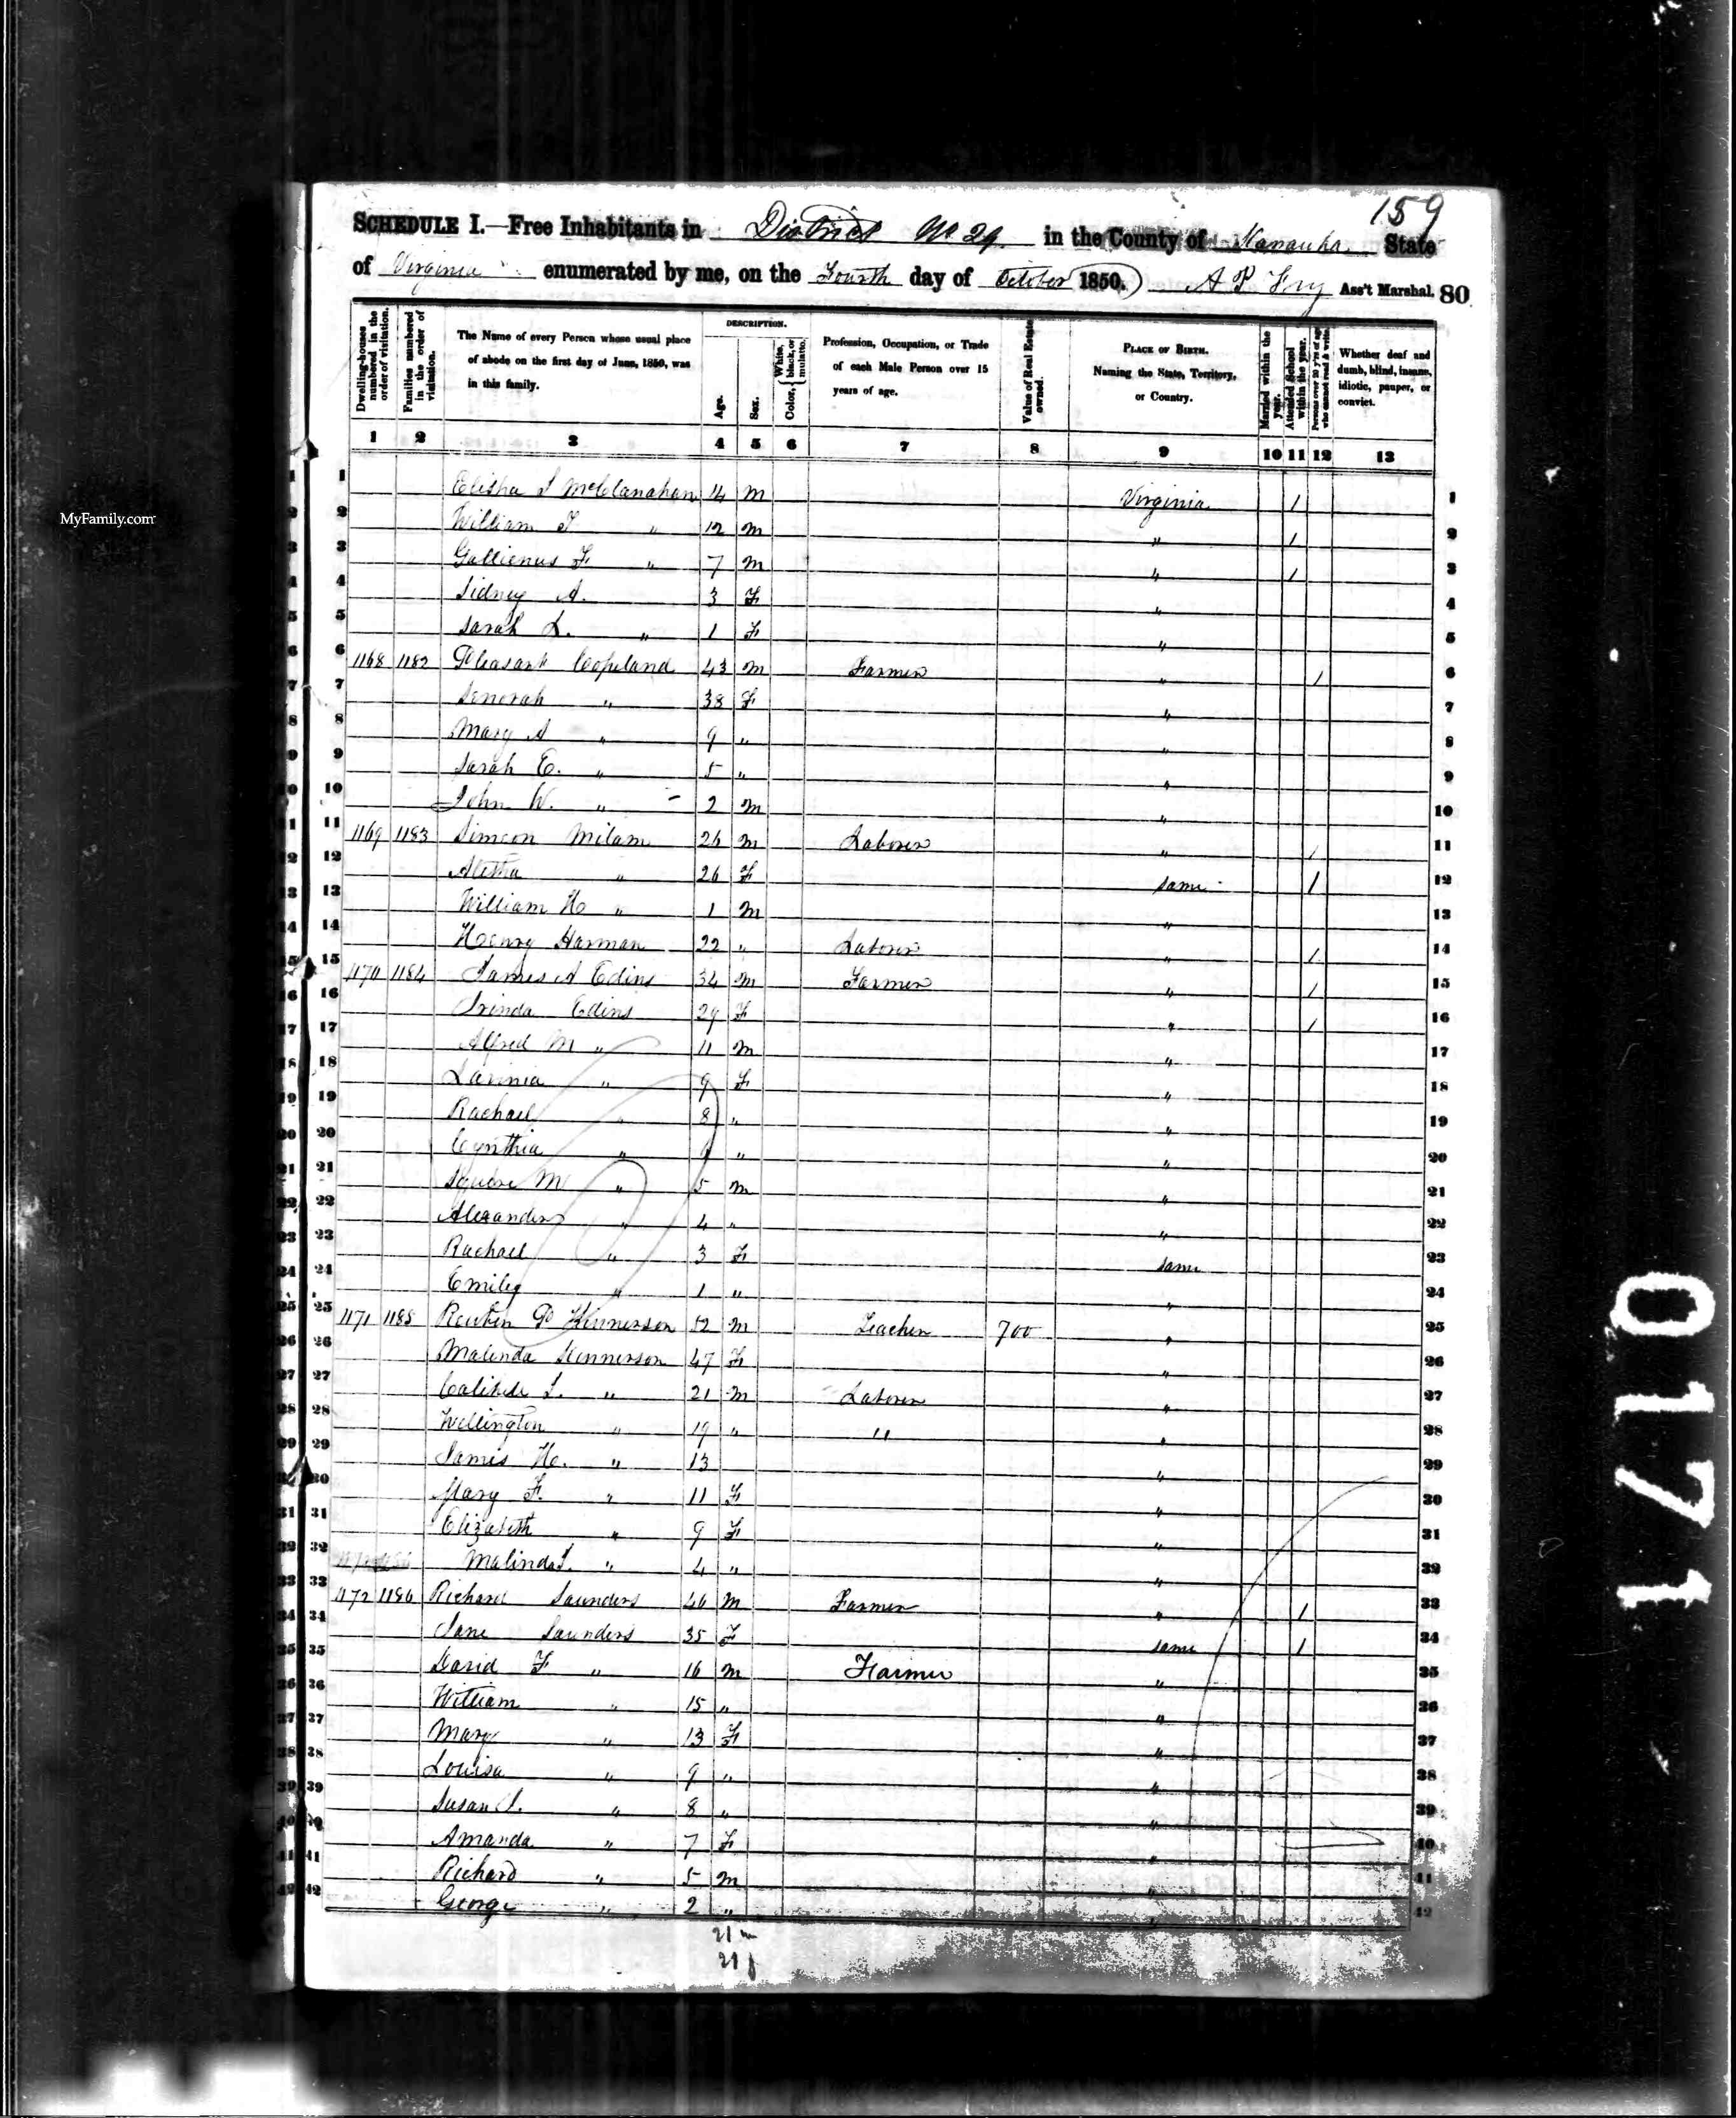 159
SCHEDULE I.—Free Inhabitants in District No 29. in the County of Kanawha State
of Virginia enumerated by me, on the Fourth day of October 1850. A P Fry Ass't Marshal. 80
Dwelling-houses numbered in the order of visitation.
Families numbered in the order of visitation.
The Name of every Person whose usual place of abode on the first day of June, 1850, was in this family.
DESCRIPTION.
Age.
Sex.
Color, { White, black, or mulatto.
Profession, Occupation, or Trade of each Male Person over 15 years of age.
Value of Real Estate owned.
PLACE OF BIRTH. Naming the State, Territory, or Country.
Married within the year.
Attended School within the year.
Persons over 20 y'rs of age who cannot read & write.
Whether deaf and dumb, blind, insane, idiotic, pauper, or convict.
1 2 3 4 5 6 7 8 9 10 11 12 13
1 1 Elisha S McClanahan 14 m Virginia 1 1
2 2 William T " 12 m " 1 2
3 3 Gallienus F " 7 m " 1 3
4 4 Sidney A. 3 F " 4
5 5 Sarah L. " 1 F " 5
6 6 1168 1182 Pleasant Copeland 43 m Farmer " 1 6
7 7 Senorah " 38 F " 7
8 8 Mary A " 9 " " 8
9 9 Sarah E. " 5 " " 9
10 10 John W. " 2 m " 10
11 11 1169 1183 Simeon Milam 26 m Laborer " 1 11
12 12 Aletha " 26 F same 1 12
13 13 William H " 1 m " 13
14 14 Henry Harman 22 " Laborer " 1 14
15 15 1170 1184 James A Edins 34 m Farmer " 1 15
16 16 Edins 29 F " 1 16
17 17 Alfred M " 11 m " 17
18 18 Lavinia " 9 F " 18
19 19 Rachael " 8 " " 19
20 20 Cynthia " " " 20
21 21 Squire M " 5 m " 21
22 22 Alexander " 4 " " 22
23 23 Rachael " 3 F same 23
24 24 Emiley " 1 " " 24
25 25 1171 1185 Reuben P Kinnerson 52 m Teacher 700 " 25
26 26 Malinda Kinnerson 47 F " 26
27 27 " 21 m Laborer " 27
28 28 Wellington " 19 " " " 28
29 29 James H. " 13 " 29
30 30 Mary F. " 11 F " 30
31 31 Elizabeth " 9 F " 31
32 32 Malinda S. " 4 " " 32
33 33 1172 1186 Richard Saunders 46 m Farmer " 1 33
34 34 Jane Saunders 35 F same 1 34
35 35 David F " 16 m Farmer " 35
36 36 William " 15 " " 36
37 37 Mary " 13 F " 37
38 38 Louisa " 9 " " 38
39 39 Susan S. " 8 " " 39
40 40 Amanda " 7 F " 40
41 41 Richard " 5 m " 41
42 42 George " 2 " " 42
21 m
21 f
MyFamily.com
0171